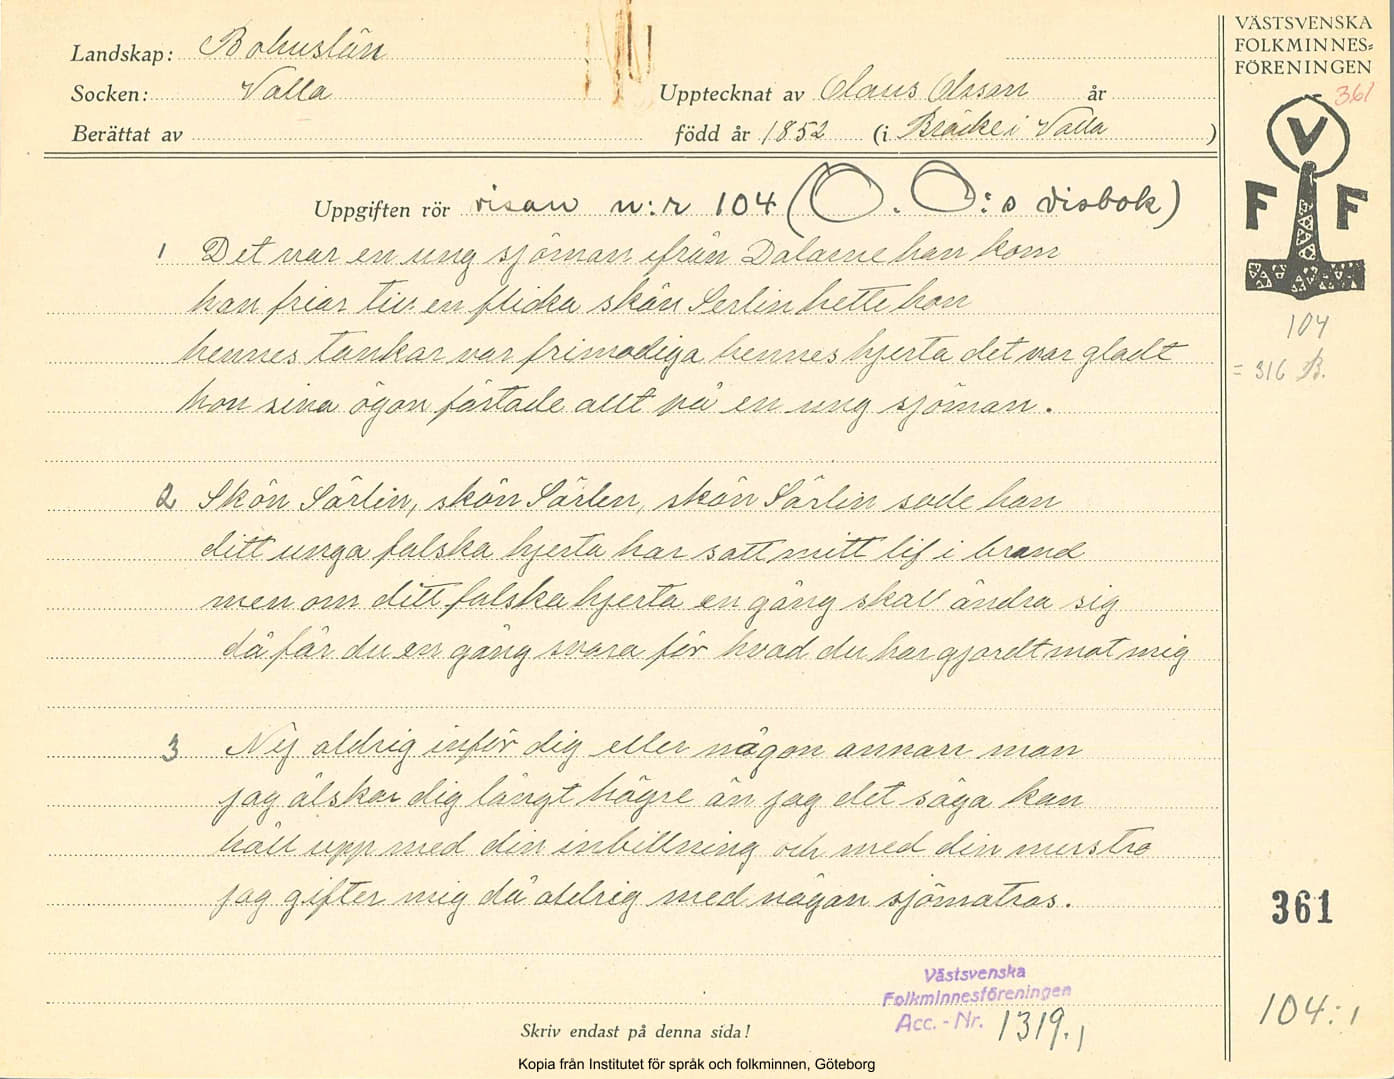 Landskap: Bohuslän
Socken: Valla
Berättat av
Upptecknat av Olaus Olsson år
född år 1852 (i Bräcke i Valla)
VÄSTSVENSKA
FOLKMINNES=
FÖRENINGEN
361
V
F F
104
= 316 B.
Uppgiften rör visan n:r 104 (O. O:s visbok)
1 Det var en ung sjöman ifrån Dalarne han kom
han friar till en flicka skön Serlin hette hon
hennes tankar var frimodiga hennes hjerta det var gladt
hon sina ögon fästade allt på en ung sjöman.
2 Skön Särlin, skön Särlin, skön Särlin sade han
ditt unga falska hjerta har satt mitt lif i brand
men om ditt falska hjerta en gång skall ändra sig
då får du en gång svara för hvad du har gjordt mot mig
3 Nej aldrig inför dig eller någon annan man
jag älskar dig långt högre än jag det säga kan
håll upp med din inbillning och med din
jag gifter mig då aldrig med någon sjömatros.
361
104:1
Västsvenska
Folkminnesföreningen
Acc.-Nr. 1319.1
Skriv endast på denna sida!
Kopia från Institutet för språk och folkminnen, Göteborg